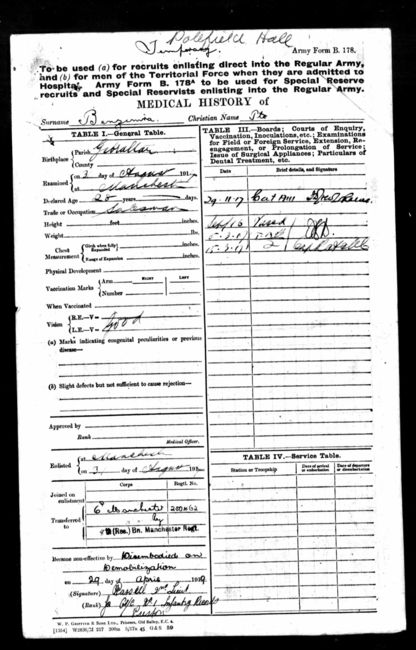 Polefield Hall
Temporary
Army Form B. 178.
To be used (a) for recruits enlisting direct into the Regular Army,
and (b) for men of the Territorial Force when they are admitted to
Hospital. Army Form B. 178A to be used for Special Reserve
recruits and Special Reservists enlisting into the Regular Army.
MEDICAL HISTORY of
Surname Christian Name Pte
TABLE I.—General Table.
Birthplace Parish Gibraltar
County
Examined on 3 day of August 191
at Manchester
Declared Age 20 years days.
Trade or Occupation Salesman
Height feet inches.
Weight lbs.
Chest Measurement Girth when fully Expanded inches.
Range of Expansion inches.
Physical Development
Vaccination Marks Arm RIGHT LEFT
Number
When Vaccinated
Vision R.E.—V=
L.E.—V= good
(a) Marks indicating congenital peculiarities or previous
disease—
(b) Slight defects but not sufficient to cause rejection—
Approved by
Rank
Medical Officer.
Enlisted at Manchester
on 3 day of August 191
Corps Regtl. No.
Joined on enlistment
6 Manchester
Transferred to
(Res.) Bn. Manchester Regt.
Became non-effective by Disembodied on
Demobilization
on 29 day of April 1919
(Signature) 2nd Lieut
(Rank) for O i/c No 1 Infantry Records
Preston
TABLE III.—Boards; Courts of Enquiry,
Vaccination, Inoculations, etc.; Examinations
for Field or Foreign Service, Extension, Re-
engagement, or Prolongation of Service;
Issue of Surgical Appliances; Particulars of
Dental Treatment, etc.
Date Brief details, and Signature
29-11-17 Cat AIII
TABLE IV.—Service Table.
Station or Troopship Date of arrival or embarkation Date of departure or disembarkation
W. P. Griffith & Sons Ltd., Printers, Old Bailey, E.C. 4.